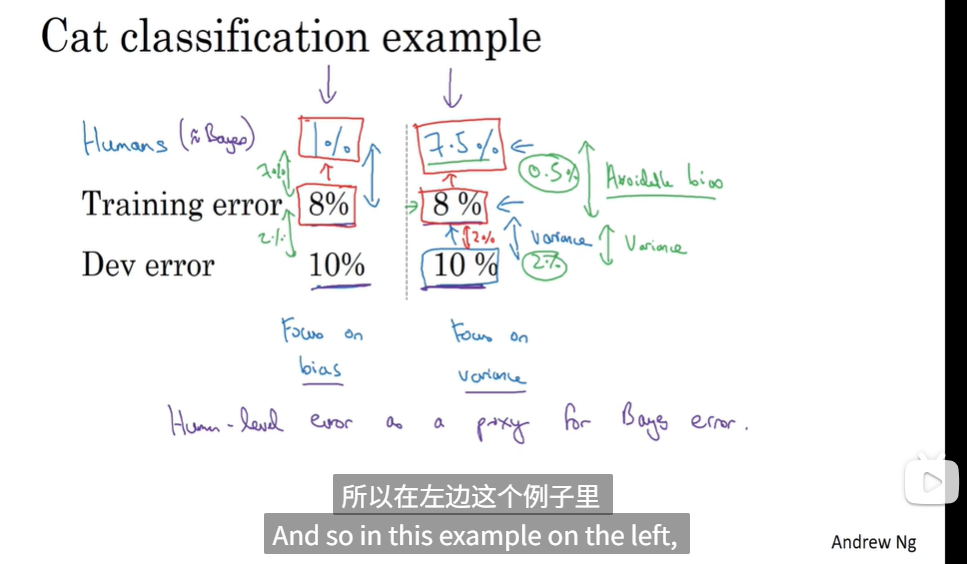 Cat classification example
Humans (≈ Bayes) 1% 7.5%
7% 0.5% Avoidable bias
Training error 8% 8 %
2% 2% Variance Variance
Dev error 10% 10 % 2%
Focus on Focus on
bias variance
Human-level error as a proxy for Bayes error.
所以在左边这个例子里
And so in this example on the left,
Andrew Ng